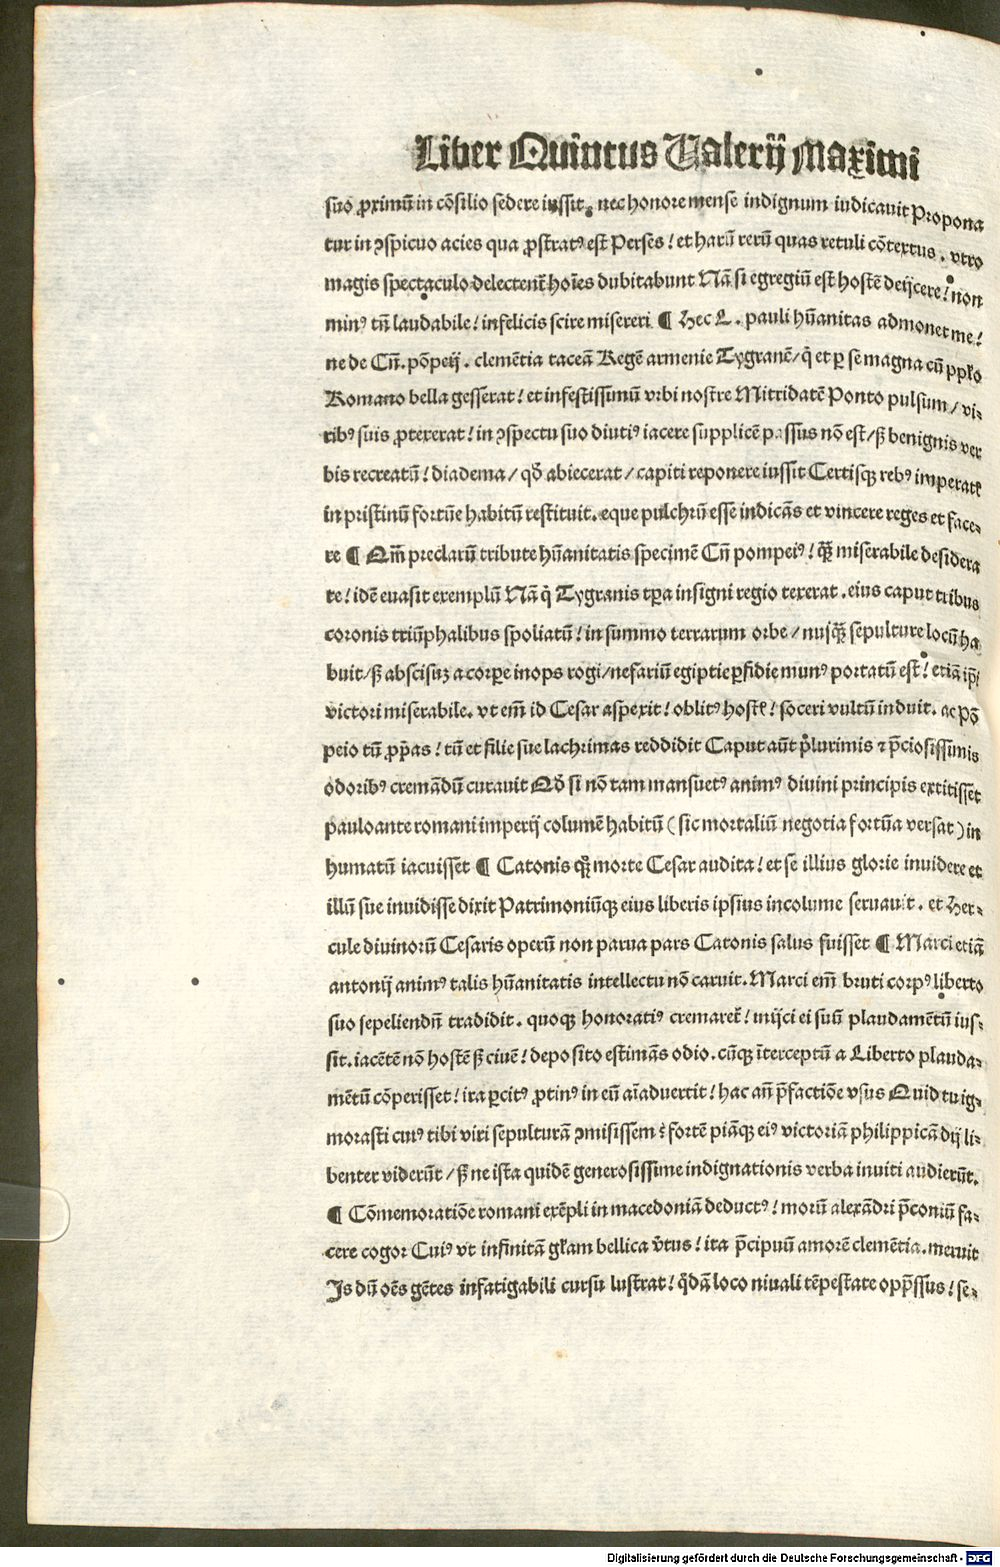 Liber Quintus Valerij Maximi
suo proximū in cōsilio sedere iussit. nec honore mense indignum iudicauit Propona
tur in ꝯspicuo acies qua ꝓstratꝰ est Perses! et harū rerū quas retuli cōtextus. vtro
magis spectaculo delectent᷑ hoīes dubitabunt Nā si egregiū est hostē deijcere! non
minꝰ tn̄ laudabile! infelicis scire misereri ¶ Hec L. pauli hūanitas admonet me!
ne de Cn̄. pōpeij. clemētia taceā Regē armenie Tygranē/ q̇ et ꝑ se magna cū ppl̓o
Romano bella gesserat! et infestissimū vrbi nostre Mitridatē Ponto pulsum/ vi⸗
ribꝰ suis ꝓtexerat! in ꝯspectu suo diutiꝰ iacere supplicē passus nō est/ sꝫ benignis ver
bis recreatū! diadema/ qd̓ abiecerat/ capiti reponere iussit Certisqꝫ rebꝰ imperatꝭ
in pristinū fortūe habitū restituit. eque pulchrū esse indicās et vincere reges et face⸗
re ¶ Qm̄ preclarū tribute hūanitatis specimē Cn̄ pompeiꝰ! qꝫ̄ miserabile desidera
te! idē euasit exemplū Nā q̇ Tygranis tp̄a insigni regio texerat. eius caput tribus
coronis triūphalibus spoliatū! in summo terrarum orbe/ nusqꝫ̄ sepulture locū ha
buit/ sꝫ abscisuꝫ a corꝑe inops rogi/ nefariū egiptie ꝑfidie munꝰ portatū est! etiā ip̄i
victori miserabile. vt em̄ id Cesar aspexit! oblitꝰ hostꝭ! soceri vultū induit. ac Pō
peio tū ꝓp̄as! tū et filie sue lachrimas reddidit Caput aūt p̓lurimis ⁊ p̄ciosissimis
odoribꝰ cremādū curauit Qd̓ si nō tam mansuetꝰ animꝰ diuini principis extitisset
pauloante romani imperij columē habitū (sic mortaliū negotia fortūa versat) in
humatū iacuisset ¶ Catonis qꝫ̄ morte Cesar audita! et se illius glorie inuidere et
illū sue inuidisse dixit Patrimoniūqꝫ eius liberis ipsius incolume seruauit. et Her⸗
cule diuinorū Cesaris operū non parua pars Catonis salus fuisset ¶ Marci etiā
antonij animꝰ talis hūanitatis intellectu nō caruit. Marci em̄ bruti corpꝰ liberto
suo sepeliendū tradidit. quoqꝫ honoratiꝰ cremaret᷑! inijci ei suū plaudamētū ius⸗
sit. iacētē nō hostē sꝫ ciuē! deposito estimās odio. cūqꝫ īterceptū a Liberto plauda⸗
mētū cōperisset! ira ꝑcitꝰ ꝓtinꝰ in eū aīaduertit! hac an̄ p̄factiōe vsus Quid tu ig⸗
norasti cuiꝰ tibi viri sepulturā ꝯmisissem ꝫ fortē piāqꝫ eiꝰ victoriā philippicā dij li⸗
benter viderūt/ sꝫ ne ista quidē generosissime indignationis verba inuiti audierūt.
¶ Cōmemoratiōe romani exēpli in macedoniā deductꝰ! morū alexādri p̄coniū fa⸗
cere cogor Cuiꝰ vt infinitā gl̓am bellica v̓tus! ita p̄cipuū amorē clemētia. meruit
Is dū oēs gētes infatigabili cursu lustrat! q̇dā loco niuali tēpestate opp̄ssus! se⸗
Digitalisierung gefördert durch die Deutsche Forschungsgemeinschaft - DFG